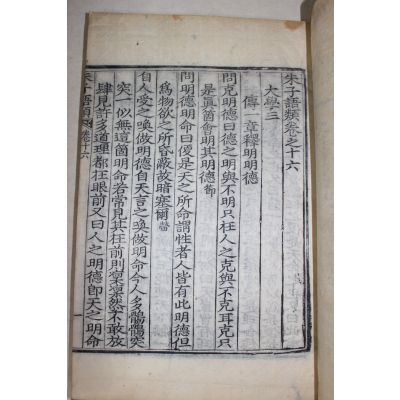 朱子語類卷之十六
大學三
傳一章釋明明德
問克明德曰德之明與不明只在人之克與不克耳克只
是眞箇會明其明德節
問明德明命曰便是天之所命謂性者人皆有此明德但
爲物欲之所昏蔽故暗塞爾
自人受之喚做明德自天言之喚做明命今人多鶻鶻突
突一似無這箇明命若常見其在前則凜凜然不敢放
肆見許多道理都在眼前又曰人之明德卽天之明命
朱子語類 卷十六